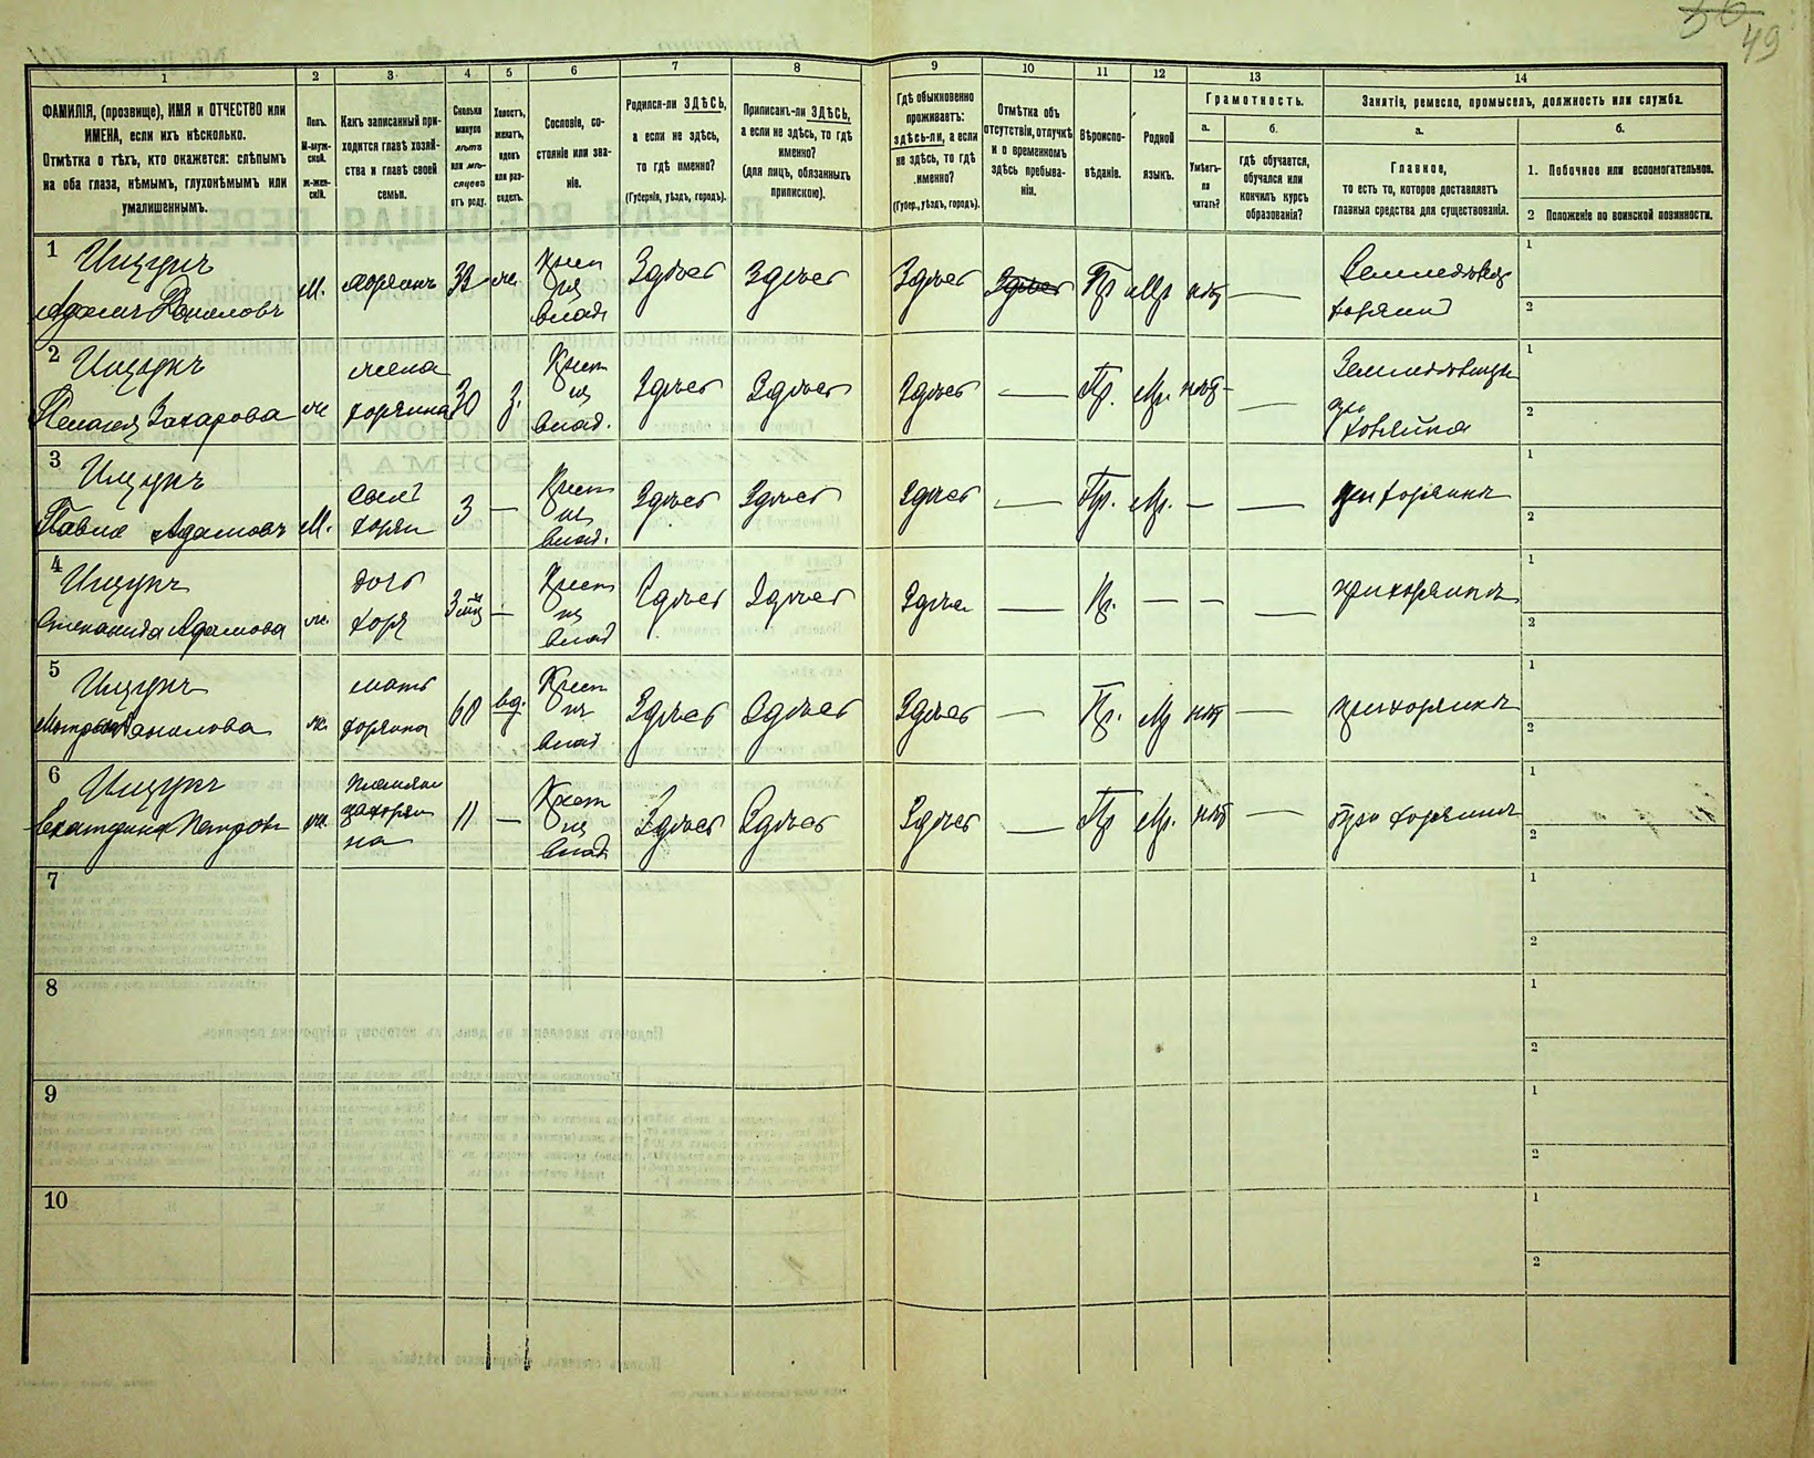 49
1
2
3
4
5
6
7
8
9
10
11
12
13
14
ФАМИЛІЯ, (прозвище), ИМЯ и ОТЧЕСТВО или
ИМЕНА, если ихъ нѣсколько.
Отмѣтка о тѣхъ, кто окажется: слѣпымъ
на оба глаза, нѣмымъ, глухонѣмымъ или
умалишеннымъ.
Полъ.
М-муж-
ской.
ж-жен-
скій.
Какъ записанный при-
ходится главѣ хозяй-
ства и главѣ своей
семьи.
Сколько
минуло
лѣтъ
или мѣ-
сяцевъ
отъ роду.
Холостъ,
женатъ,
вдовъ
или раз-
веденъ.
Сословіе, со-
стояніе или зва-
ніе.
Родился-ли ЗДѢСЬ,
а если не здѣсь,
то гдѣ именно?
(Губернія, уѣздъ, городъ).
Приписанъ-ли ЗДѢСЬ,
а если не здѣсь, то гдѣ
именно?
(для лицъ, обязанныхъ
припискою).
Гдѣ обыкновенно
проживаетъ:
здѣсь-ли, а если
не здѣсь, то гдѣ
именно?
(Губер., уѣздъ, городъ).
Отмѣтка объ
отсутствіи, отлучкѣ
и о временномъ
здѣсь пребыва-
ніи.
Вѣроиспо-
вѣданіе.
Родной
языкъ.
Грамотность.
а.
Умѣетъ-
ли
читать?
б.
гдѣ обучается,
обучался или
кончилъ курсъ
образованія?
Занятіе, ремесло, промыселъ, должность или служба.
а.
Главное,
то есть то, которое доставляетъ
главныя средства для существованія.
б.
1. Побочное или вспомогательное.
2 Положеніе по воинской повинности.
1
Ищукъ
Адамъ
М.
32
Здѣсь
Здѣсь
Здѣсь
Здѣсь
Пр
Мр
нѣт
—
1
2
2
Ищукъ
Пелагея Захарова
ж
жена
хозяина
30
З.
Крест
из
влад.
Здѣсь
Здѣсь
Здѣсь
—
Пр.
Мр.
нѣт
—
1
2
3
Ищукъ
Павло Адамовъ
М.
3
—
Крест
из
влад.
Здѣсь
Здѣсь
Здѣсь
—
Пр.
Мр.
—
—
при хозяинѣ
1
2
4
Ищукъ
Степанида Адамова
ж.
дочь
хозя
—
Крест
из
влад
Здѣсь
Здѣсь
—
Пр.
—
—
—
при хозяинѣ
1
2
5
Ищукъ
Данилова
ж.
мать
хозяина
60
вд.
Крест
из
влад
Здѣсь
Здѣсь
Здѣсь
—
Пр.
Мр
нѣт
—
при хозяинѣ
1
2
6
Ищукъ
Екатерина Петров
ж.
11
—
Крест
из
влад
Здѣсь
Здѣсь
Здѣсь
—
Пр
Мр.
нѣт
—
при хозяинѣ
1
2
7
1
2
8
1
2
9
1
2
10
1
2